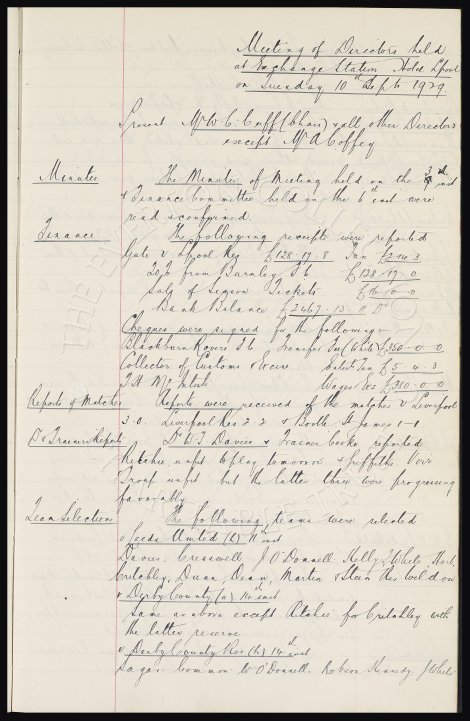 Meeting of Directors held
at Exchange Station Hotel Lpool
on Tuesday 10th Sept 1929.
Present Mr W. C. Cuff (Chair) & all other Directors
except Mr A Coffey
Minutes The Minutes of Meeting held on the 3rd inst
& Finance Committee held on the 6th inst were
read & confirmed.
Finance. The following receipts were reported
Gate v Lpool Res £128.19.8 Tax £24.3
20% from Burnley F C £128.19.0
Sale of Season Tickets
Bank Balance £2467.13.11 Dr
Cheques were signed for the following:-
Blackburn Rovers F C Transfer Fee (White) £350-0-0
Collector of Customs & Excise Tax £5.4.3
T. H. McIntosh Wages &c £380-0-0
Reports of Matches Reports were received of the matches v Liverpool
3-0. Liverpool Res 2-2 & Bootle St James 1-1
Dr & Trainers Report Dr W. J. Davies & Trainer Cooke reported
Ritchie unfit to play tomorrow & Griffiths, Vorr
Troup unfit but the latter three were progressing
favorably
Team Selections The following teams were selected
v Leeds United (h) 11th inst
Davies. Cresswell J O'Donnell. Kelly White Hart
Critchley, Dunn, Dean, Martin & Stein Res Weldon
v Derby County (a) 14th inst
Same as above except Ritchie for Critchley with
the latter reserve
v Derby County Res (h) 14th inst
Sagar Common W O'Donnell. Robson Kennedy J White